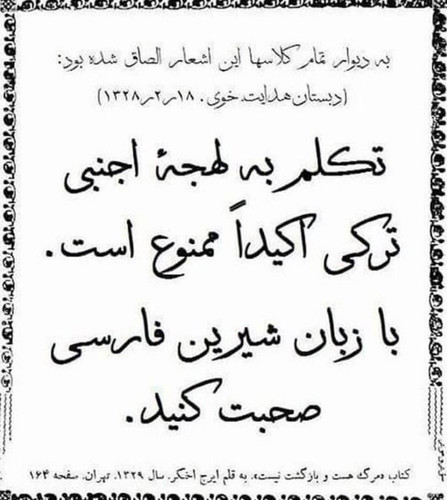 به دیوار تمام کلاسها این اشعار الصاق شده بود:
(دبستان هدایت خوی. ۱۸ر۲ر۱۳۲۸)
تکلم به لهجهٔ اجنبی
ترکی اکیداً ممنوع است.
با زبان شیرین فارسی
صحبت کنید.
کتاب «مرگ هست و بازگشت نیست»، به قلم ایرج اخگر. سال ۱۳۲۹. تهران. صفحه ۱۶۴